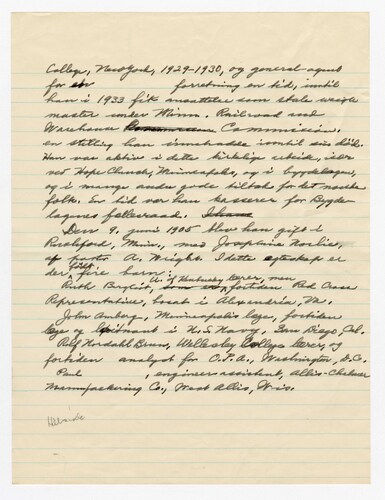 College, New York, 1929-1930, og general agent
for en forretning en tid, inntil
han i 1933 fik ansættelse som state weigh
master under Minn. Railroad and
Warehouse Commission.
en stilling han innehadde inntil sin död.
Han var aktiv i dette kirkelig arbeide, især
ved Hope Church, Minneapolis, og i bygdelagene,
og i mange andre gode tiltak for det norske
folk. En tid var han kasserer for Bygde-
lagenes fellesraad.
Den 9. juni 1905 blev han gift i
Rushford, Minn., med Josephine
A. Wright. I dette egteskap er
der født fire barn:
Ruth A. of Kentucky
fortiden Red Cross
Representative, bosat i Alexandria, Va.
John Amberg, Minneapolis læge, fortiden
læge og löitnant i U.S. Navy, San Diego, Cal.
Rolf Nordahl Brun, Wellesley College lærer, og
fortiden analyst for O.P.A., Washington, D.C.
Paul , engineer assistent, Allis-Chalmer
Mannufackering Co., West Allis, Wis.